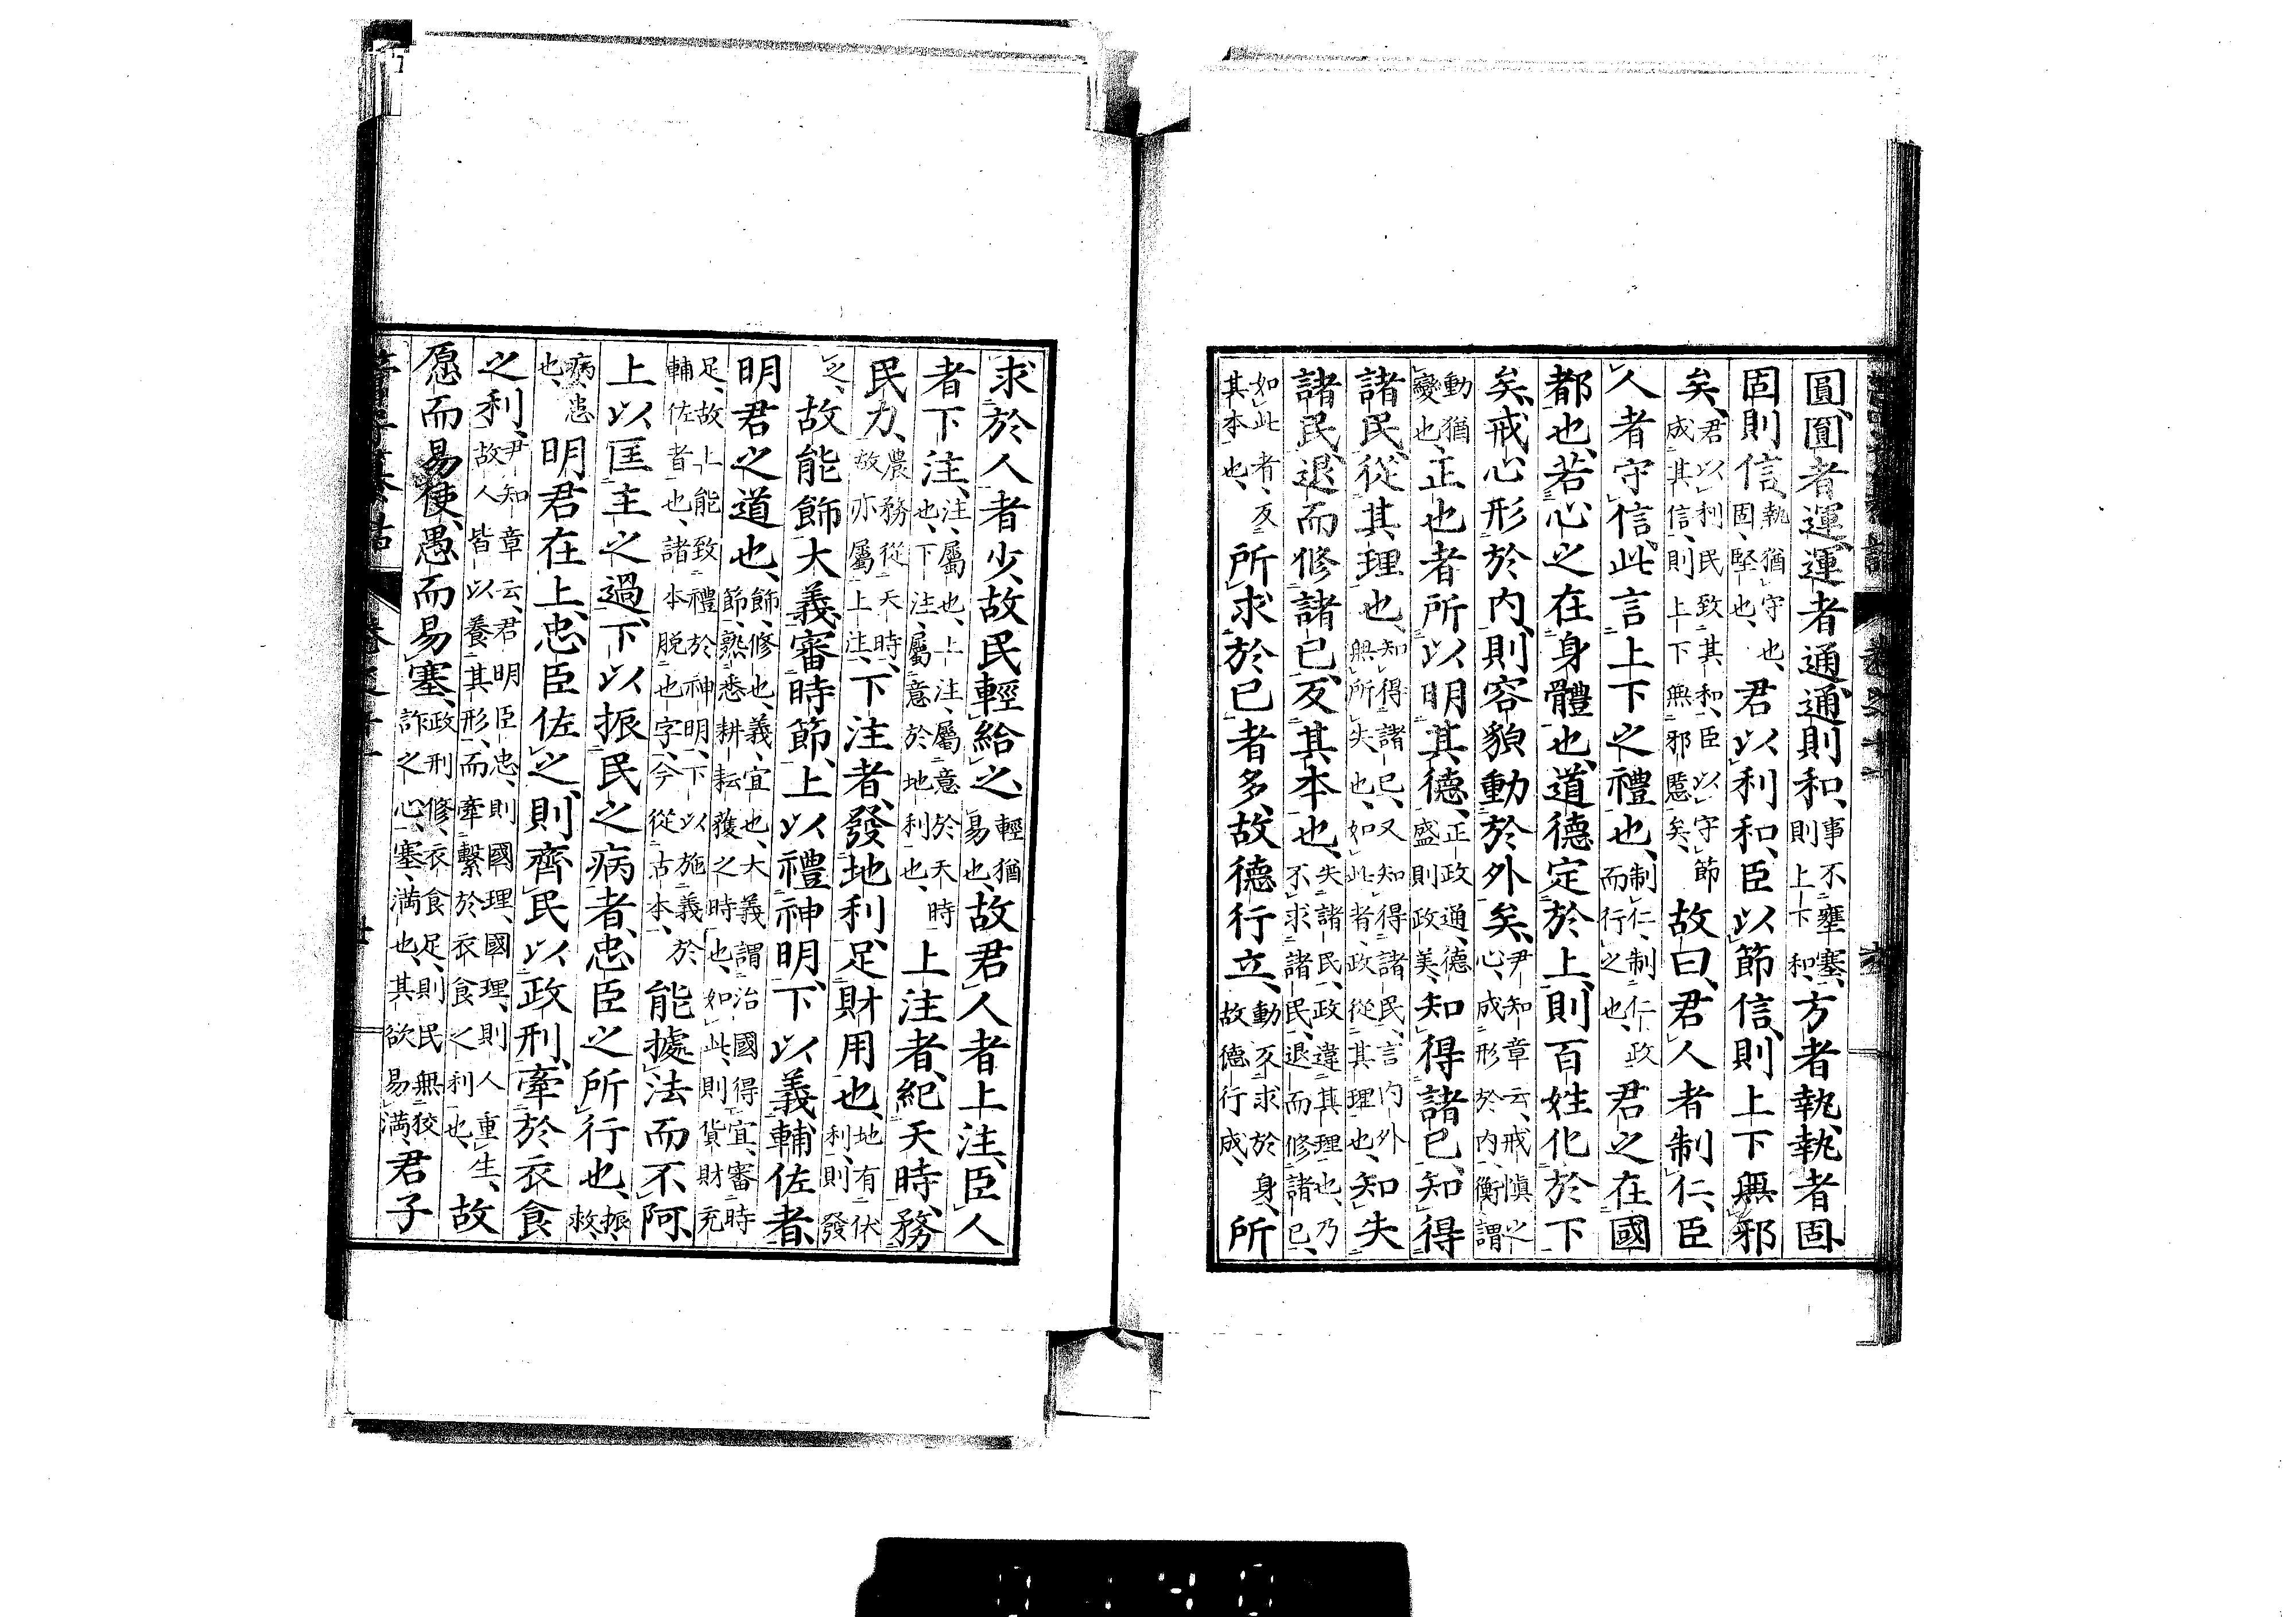 圓、圓者運、運者通、通則和、事不壅塞、則上下和、方者執、執者固、
固則信、執猶守也、固、堅也、君以利和、臣以節信、則上下無邪
矣、君以利民致其和、臣以守節成其信、則上下無邪慝矣、故曰、君人者制仁、臣
人者守信、此言上下之禮也、制仁、制仁政而行之也、君之在國
都也、若心之在身體也、道德定於上、則百姓化於下
矣、戒心形於內、則容貌動於外矣、尹知章云、戒愼之心、成形於內、衡謂
動猶變也、正也者、所以明其德、正政通、德盛則政美、知得諸己、知得
諸民、從其理也、知得諸己、又知得諸民、言內外無所失也、如此者、政從其理也、知失
諸民、退而修諸己、反其本也、失諸民、政違其理也、乃不求諸民、退而修諸己、
如此者、反其本也、所求於己者多、故德行立、動反求於身、故德行成、所
求於人者少、故民輕給之、輕猶易也、故君人者上注、臣人
者下注、注、屬也、上注、屬意於天時也、下注、屬意於地利也、上注者、紀天時、務
民力、農務從天時、故亦屬上注、下注者、發地利、足財用也、地有伏利、則發
之、故能飾大義、審時節、上以禮神明、下以義輔佐者、
明君之道也、飾、修也、義、宜也、大義謂治國得宜、審時節、熟悉耕耘穫之時也、如此、則貨財充
足、故上能致禮於神明、下以施義於輔佐者也、諸本脫也字、今從古本、能據法而不阿、
上以匡主之過、下以振民之病者、忠臣之所行也、振、救
病患也、明君在上、忠臣佐之、則齊民以政刑、牽於衣食
之利、尹知章云、君明臣忠、則國理、國理、則人重生、故人皆以養其形、而牽繫於衣食之利也、故
愿而易使、愚而易塞、政刑修、衣食足、則民無狡詐之心、塞、滿也、其欲易滿、君子